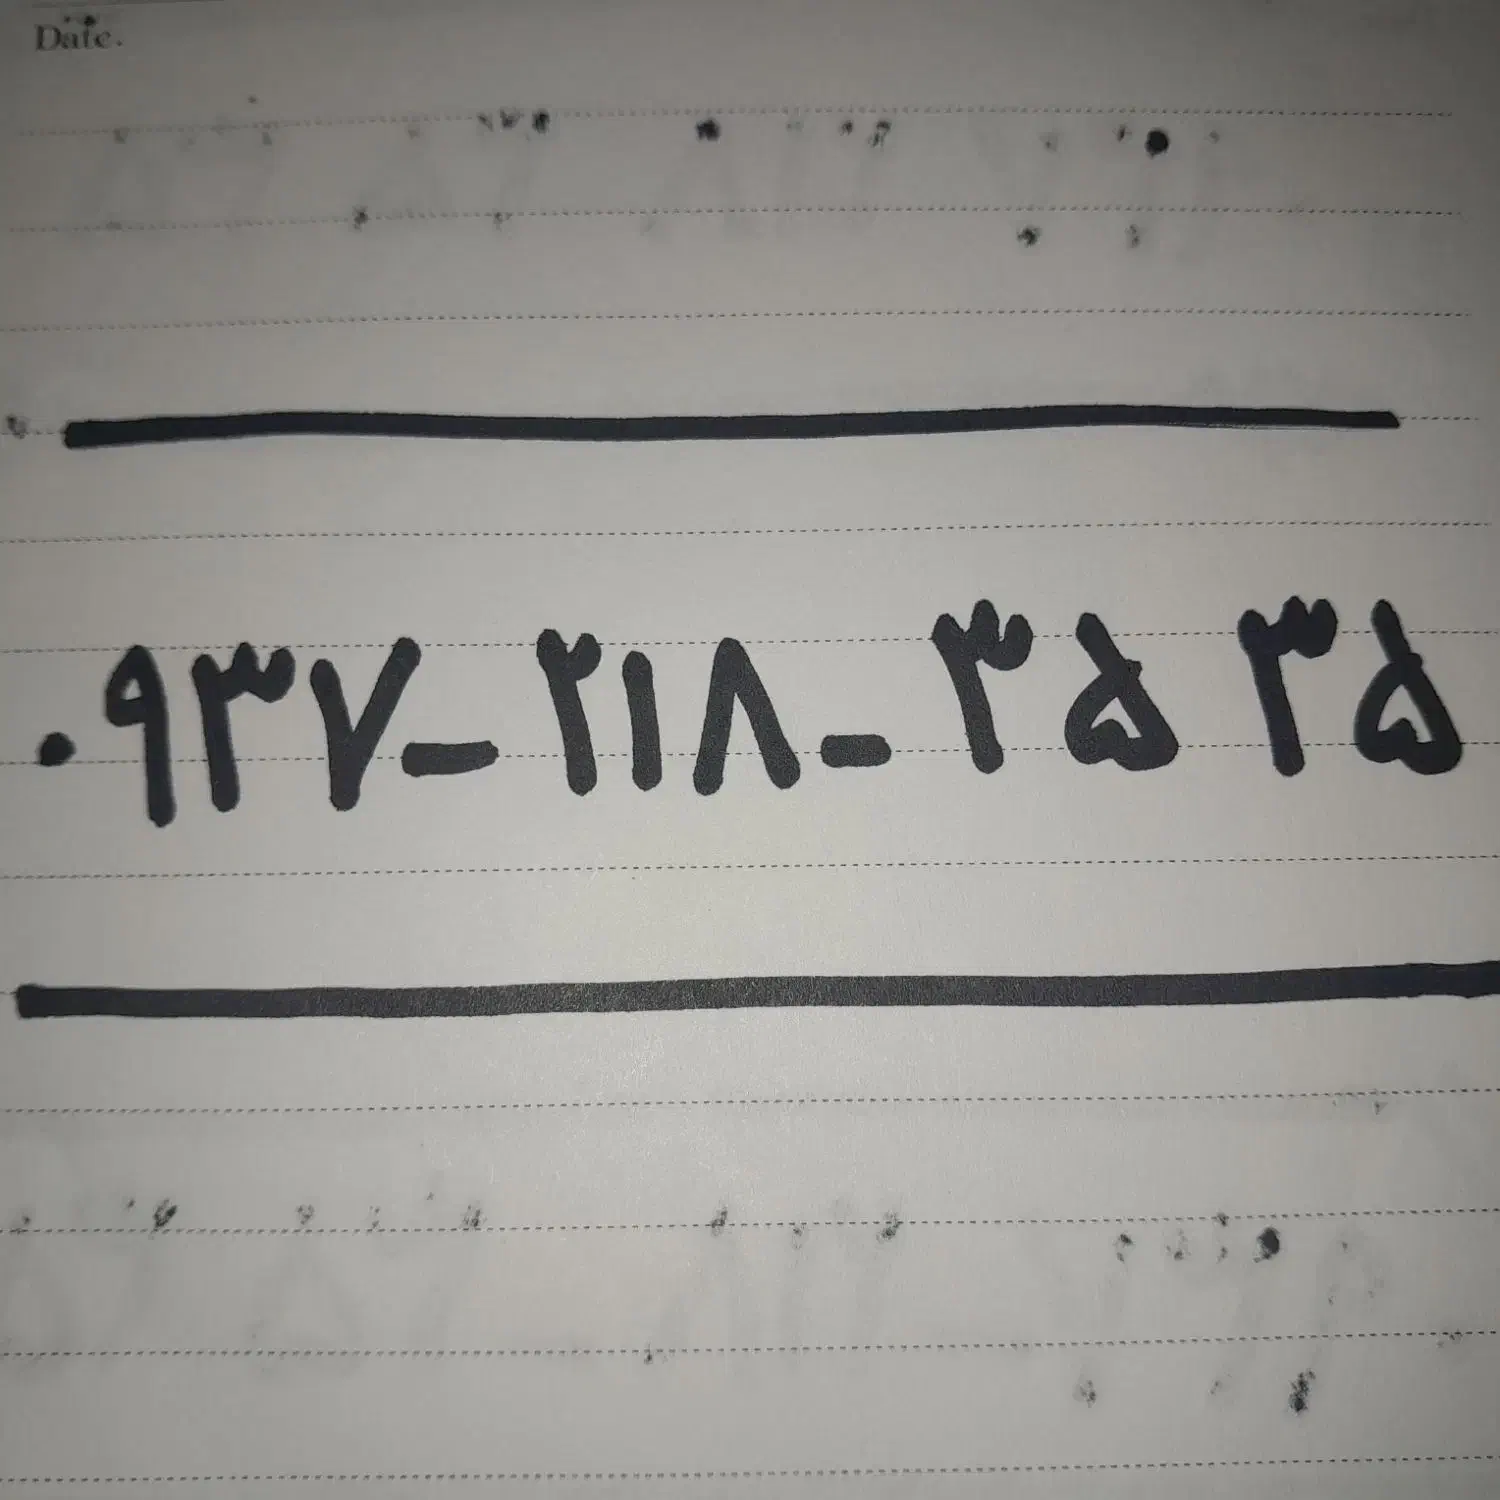 Date.
۰۹۳۷-۲۱۸-۳۵ ۳۵